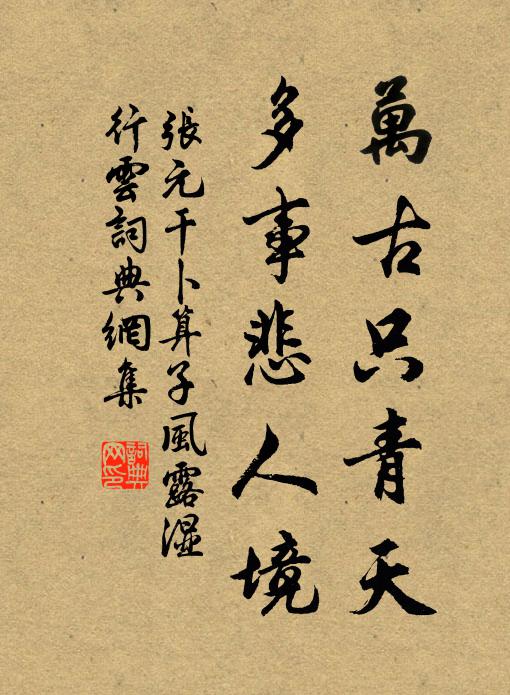 萬古只青天
多事悲人境
張元干卜算子風露濕
行雲詞典網集
詞典
网印